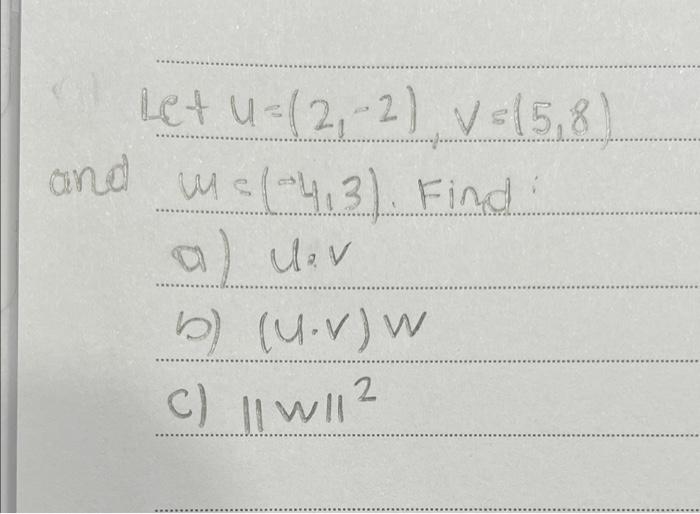 Let u=(2,-2), v=(5,8)
and w=(-4,3). Find:
a) u.v
b) (u.v)w
c) ||w||²